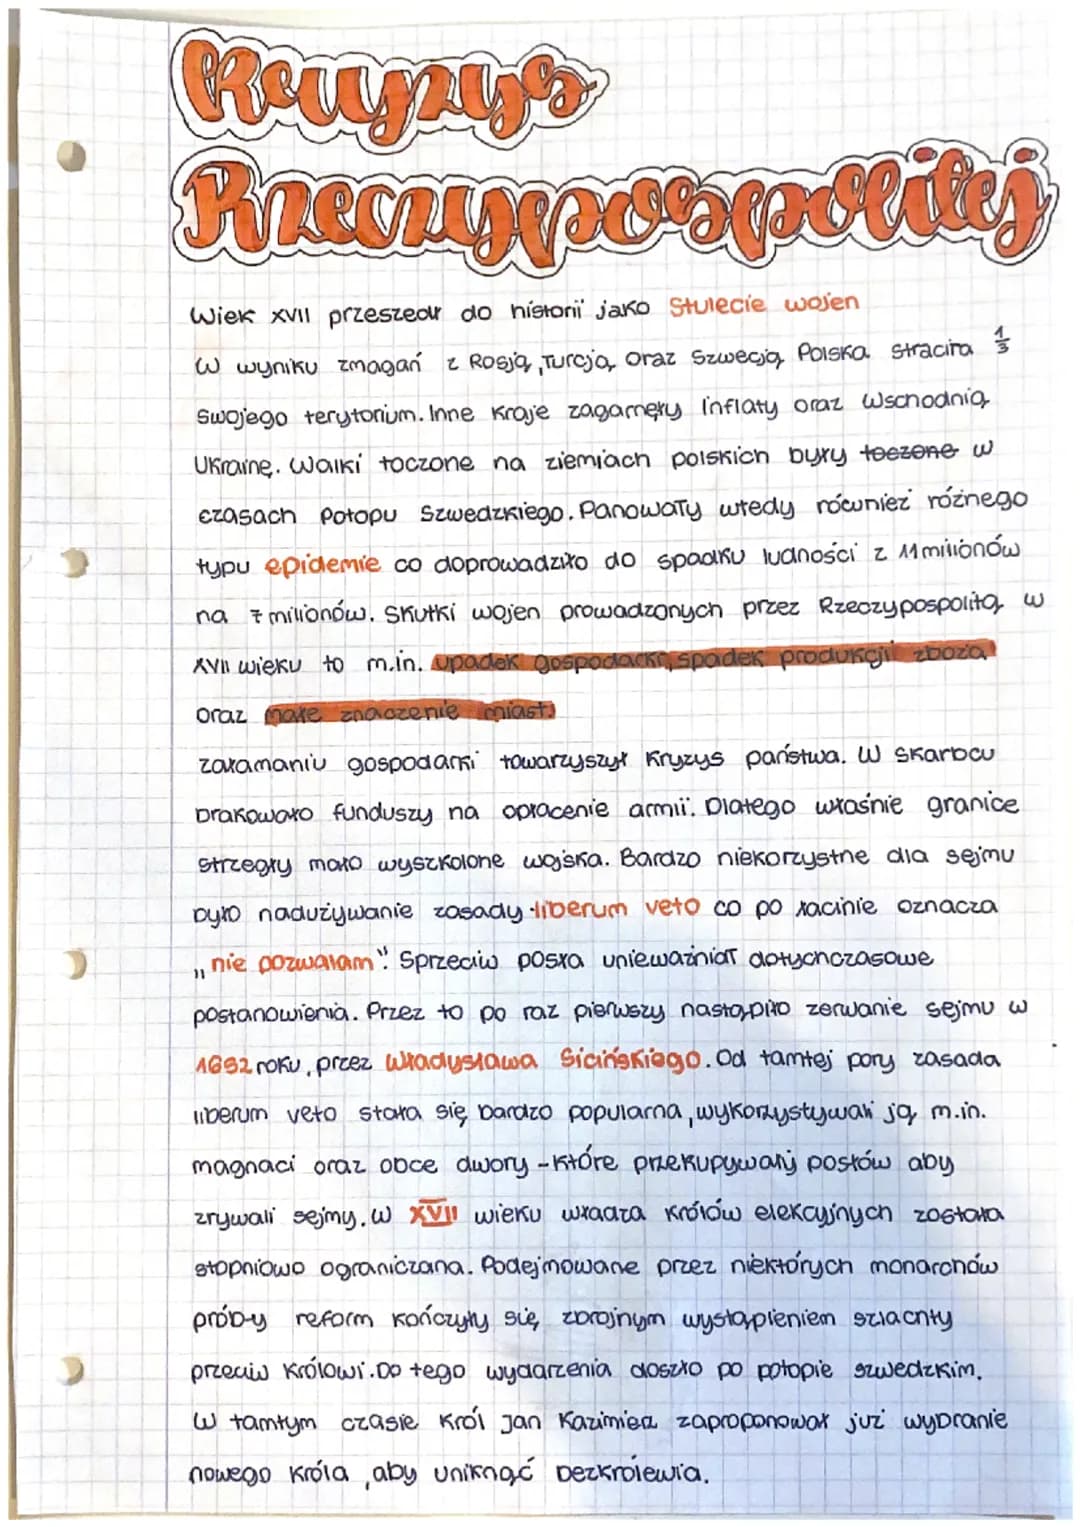 Kryzys
Rzeczypospolitej
Wiek XVII przeszedł do historii jako Stulecie wojen
W wyniku zmagań z Rosją, Turcją, oraz Szwecją Polska straciła 1/3
swojego terytorium. Inne kraje zagarnęły Inflaty oraz Wschodnią
Ukrainę. Walki toczone na ziemiach polskich były toczone w
czasach Potopu Szwedzkiego. Panowały wtedy również różnego
typu epidemie co doprowadziło do spadku ludności z 11 milionów
na 7 milionów. Skutki wojen prowadzonych przez Rzeczypospolitą w
XVII wieku to m.in. upadek gospodarki, spadek produkcji zboża
oraz małe znaczenie miast.
załamaniu gospodarki towarzyszył kryzys państwa. W skarbcu
brakowało funduszy na opłacenie armii. Dlatego właśnie granice
strzegły mało wyszkolone wojska. Bardzo niekorzystne dla sejmu
było nadużywanie zasady liberum veto co po łacinie oznacza
„nie pozwalam". Sprzeciw posła unieważniał dotychczasowe
postanowienia. Przez to po raz pierwszy nastąpiło zerwanie sejmu w
1652 roku, przez Władysława Sicińskiego. Od tamtej pory zasada
liberum veto stała się bardzo popularna, wykorzystywali ją m.in.
magnaci oraz obce dwory - które przekupywały posłów aby
zrywali sejmy. W XVII wieku władza królów elekcyjnych została
stopniowo ograniczana. Podejmowane przez niektórych monarchów
próby reform kończyły się zbrojnym wystąpieniem szlachty
przeciw królowi. Do tego wydarzenia doszło po potopie szwedzkim.
W tamtym czasie Król Jan Kazimierz zaproponował już wybranie
nowego króla, aby uniknąć bezkrólewia.